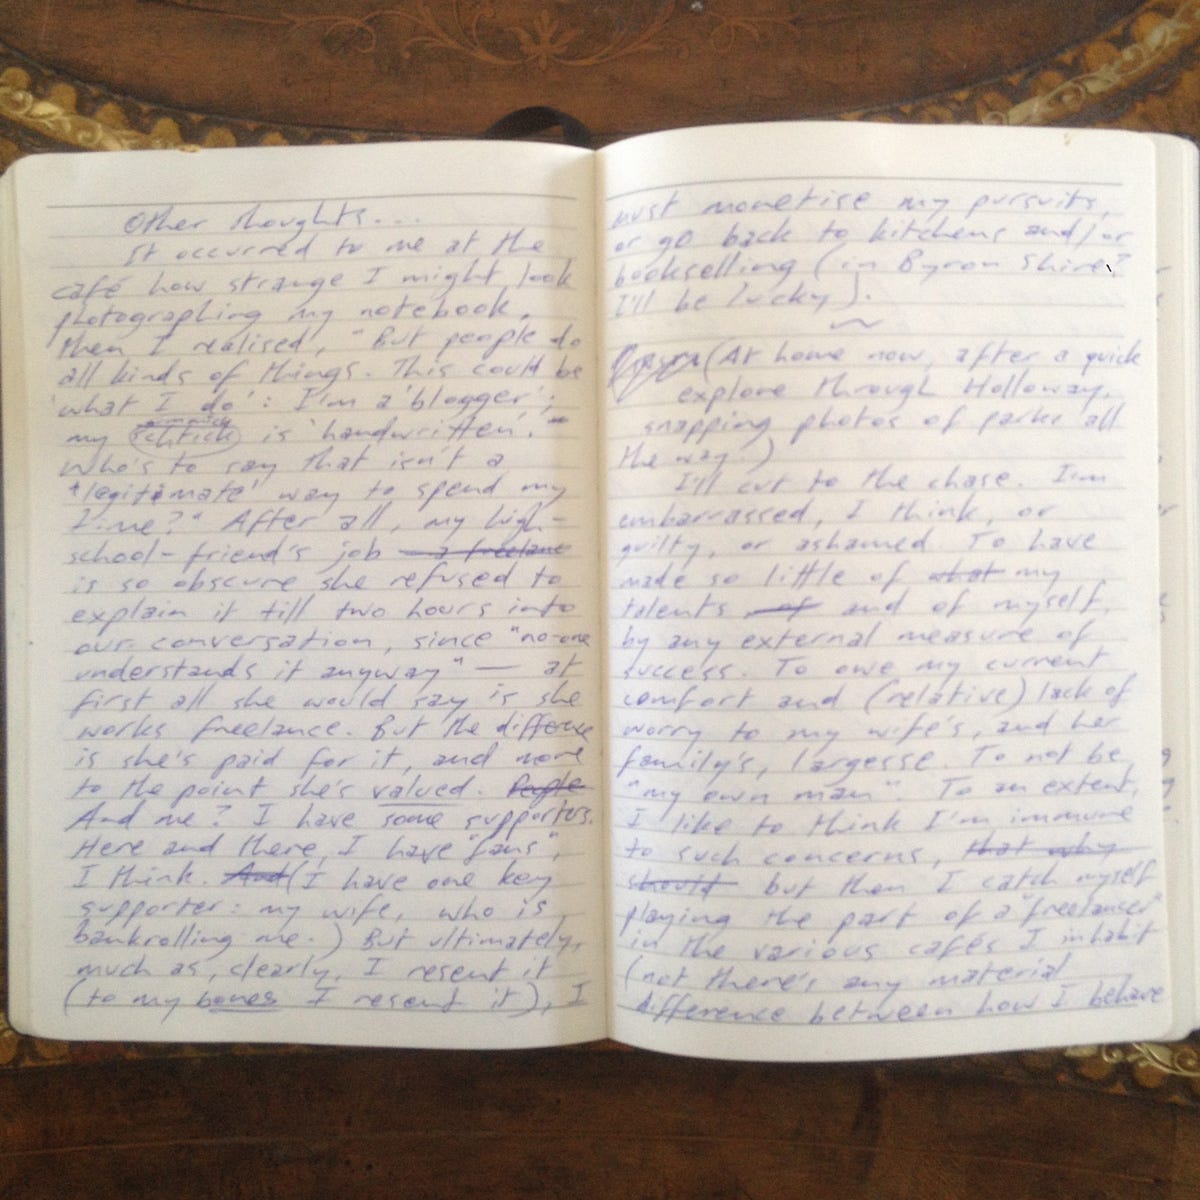 Other thoughts...
It occurred to me at the
café how strange I might look
photographing my notebook,
then I realised, "But people do
all kinds of things. This could be
'what I do': I'm a 'blogger';
my schtick is 'handwritten'."
Who's to say that isn't a
'legitimate' way to spend my
time?" After all, my high-
school-friend's job — a freelanc
is so obscure she refused to
explain it till two hours into
our conversation, since "no-one
understands it anyway" — at
first all she would say is she
works freelance. But the difference
is she's paid for it, and more
to the point she's valued. People
And me? I have some supporters.
Here and there, I have "fans",
I think. And (I have one key
supporter: my wife, who is
bankrolling me.) But ultimately,
much as, clearly, I resent it
(to my bones I resent it), I
must monetise my pursuits,
or go back to kitchens and/or
bookselling (in Byron Shire?
I'll be lucky).
~
(At home now, after a quick
explore through Holloway,
snapping photos of parks all
the way.)
I'll cut to the chase. I'm
embarrassed, I think, or
guilty, or ashamed. To have
made so little of what my
talents of and of myself,
by any external measure of
success. To owe my current
comfort and (relative) lack of
worry to my wife's, and her
family's, largesse. To not be
"my own man". To an extent,
I like to think I'm immune
to such concerns, that why
should but then I catch myself
playing the part of a "freelancer"
in the various cafés I inhabit
(not there's any material
difference between how I behave